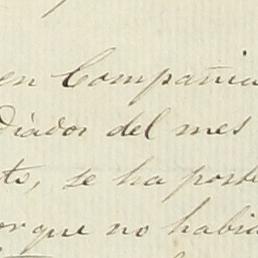 en Compañia
diados del mes
to, se ha poste
orque no habia